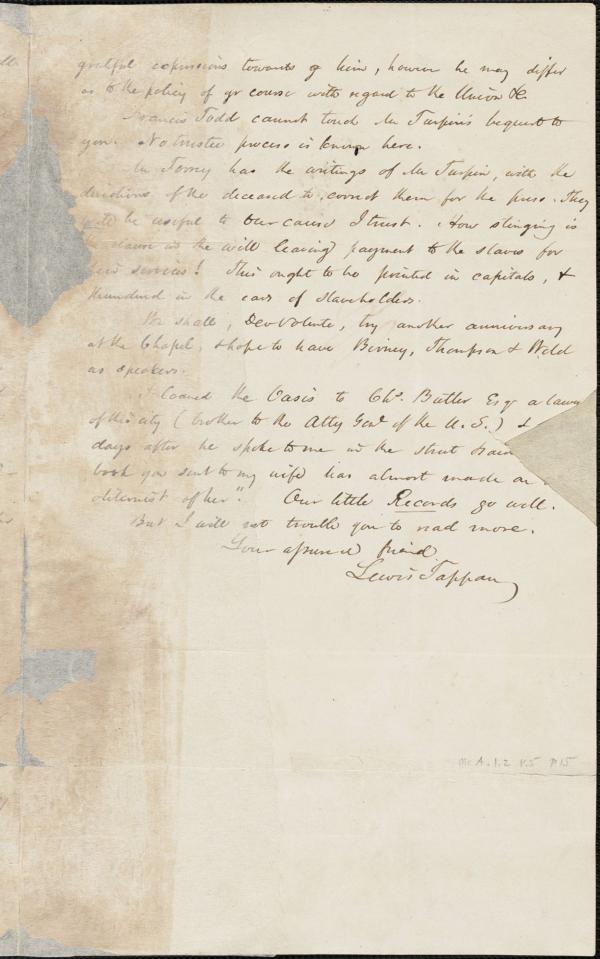 grateful expressions towards g him, however he may differ
as to the policy of yr course with regard to the Union &c.
Francis Todd cannot touch Mr Turpin's bequest to
you. No trustee process is known here.
Mr Torrey has the writings of Mr Turpin, with the
directions of the deceased to correct them for the press. They
will be useful to our cause I trust. How stinging is
the clause in the will leaving payment to the slaves for
their services! This ought to be printed in capitals, &
thundered in the ears of slaveholders.
We shall, Deo Volente, try another anniversary
at the Chapel, & hope to have Birney, Thompson & Weld
as speakers.
I loaned the Oasis to Chs. Butler Esqr a lawy
of this city (brother to the Atty Genl of the U.S.) &
days after he spoke to me in the street
book you sent to my wife has almost made an
olitionist of her". Our little Records go well.
But I will not trouble you to read more.
Your assured friend
Lewis Tappan
Ms A.1.2 v.5 p15